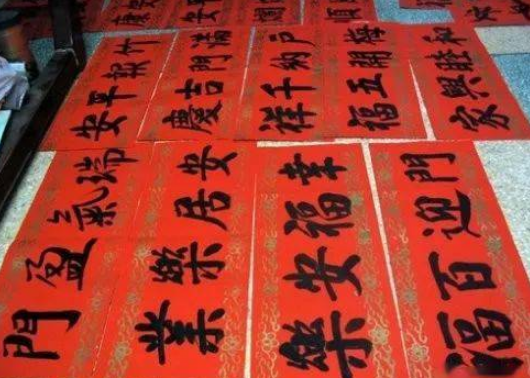 竹報平安
滿門吉慶
戶納千祥
梅開五福
和睦興家
瑞氣盈門
安居樂業
幸福安樂
門迎百福